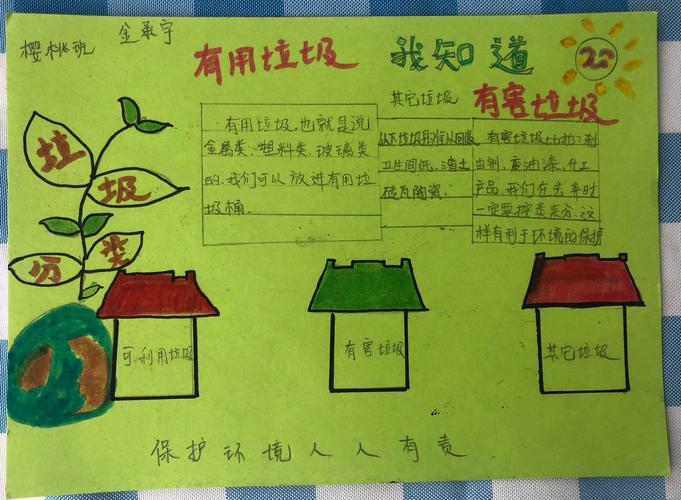 樱桃班
金承宇
有用垃圾
我知道
其它垃圾
有害垃圾
有用垃圾,也就是说
金属类、塑料类、玻璃类
的,我们可以放进有用垃
圾桶。
以下垃圾很难以回收
卫生间纸、渣土
砖瓦陶瓷、
有害垃圾
虫剂、废油漆、化工
产品,我们在丢弃时
一定要按类来分,这
样有利于环境的保护
垃
圾
分
类
可利用垃圾
有害垃圾
其它垃圾
保护环境人人有责